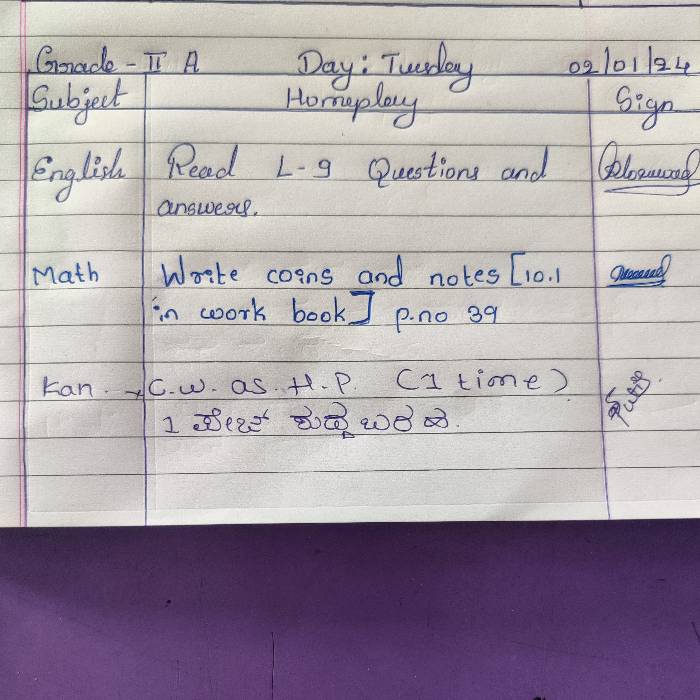 Grade - II A Day: Tuesday 02/01/24
Subject Homeplay Sign
English Read L-9 Questions and
answers.
Math Write coins and notes [10.1
in work book] p.no 39
Kan. → C.W. as H.P. (1 time)
1 ಪೇಜ್ ಶುದ್ಧ ಬರಹ.